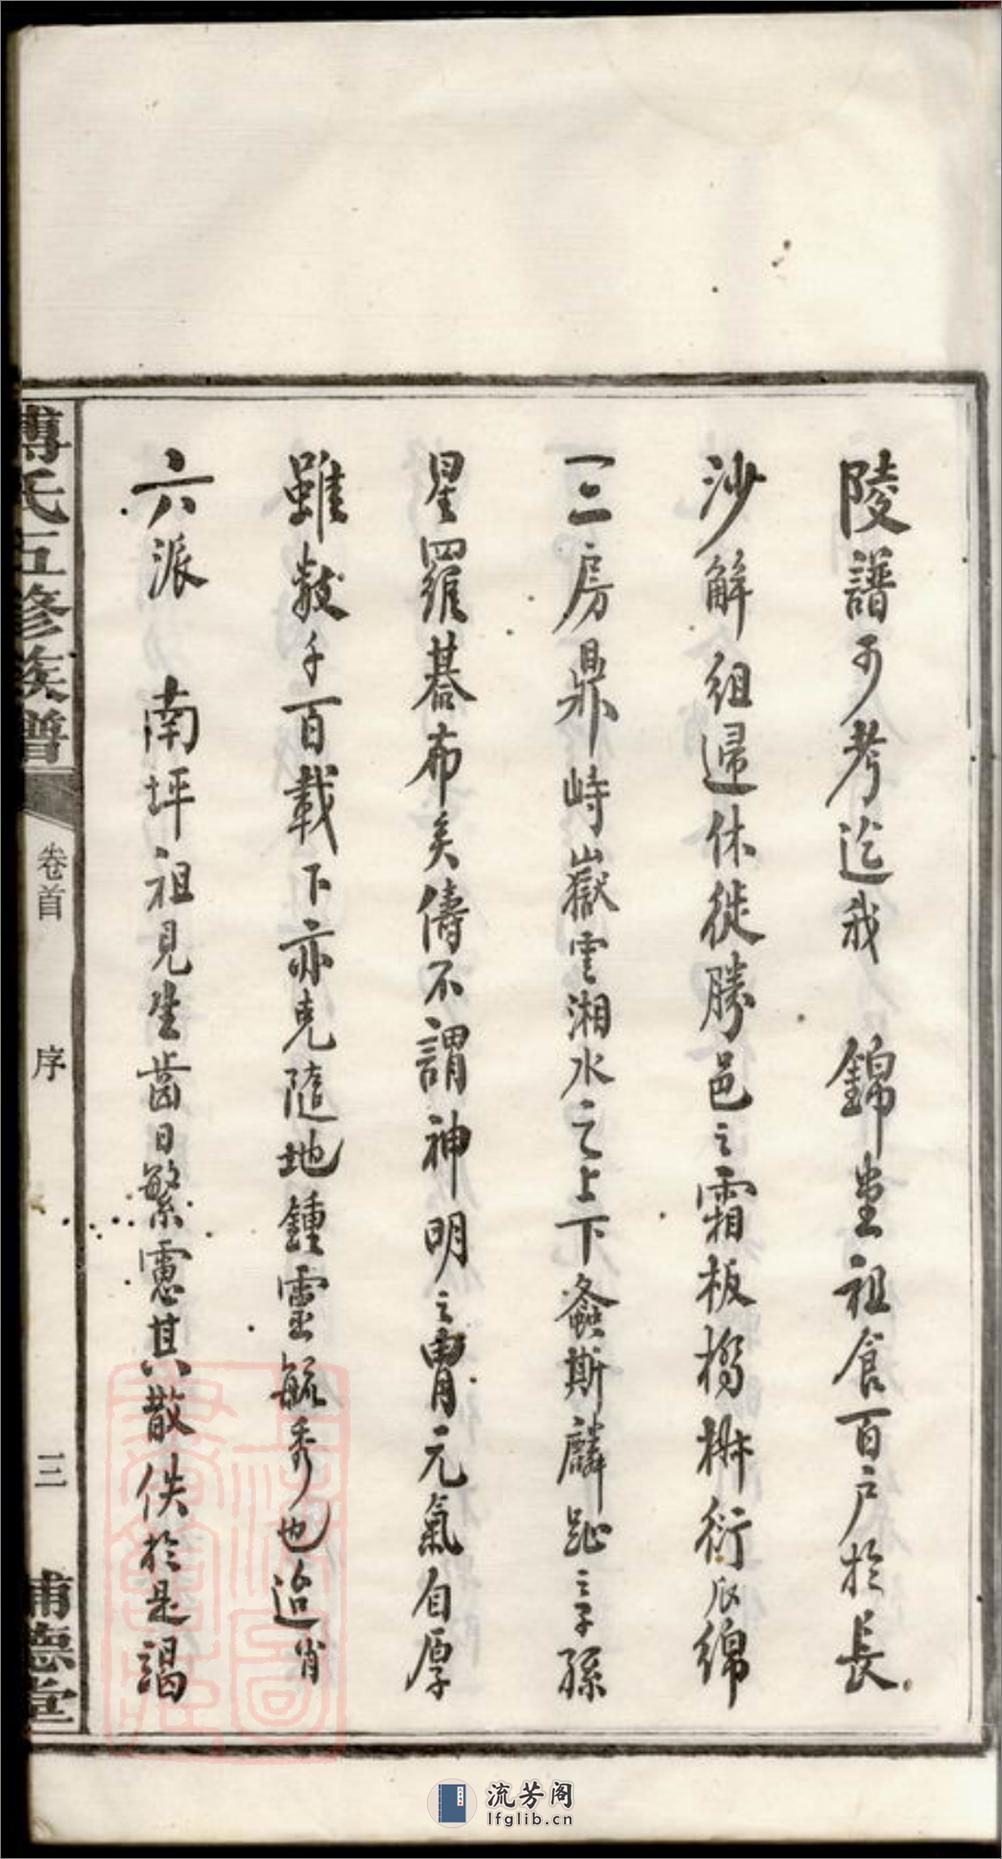 陵譜可考迄我 錦堂祖食百戶於長
沙解組歸休徙勝邑之霜板橋枡衍瓜綿
一二房鼎峙嶽雲湘水之上下螽斯麟趾之子孫
星羅碁布矣儔不謂神明之胄元氣自厚
雖數千百載下亦克隨地鍾靈毓秀也迨肖
六派 南坪祖見生齒日繁慮其散佚於是謁
傅氏五修族譜
卷首
序
三
浦德堂
流芳阁
lfglib.cn